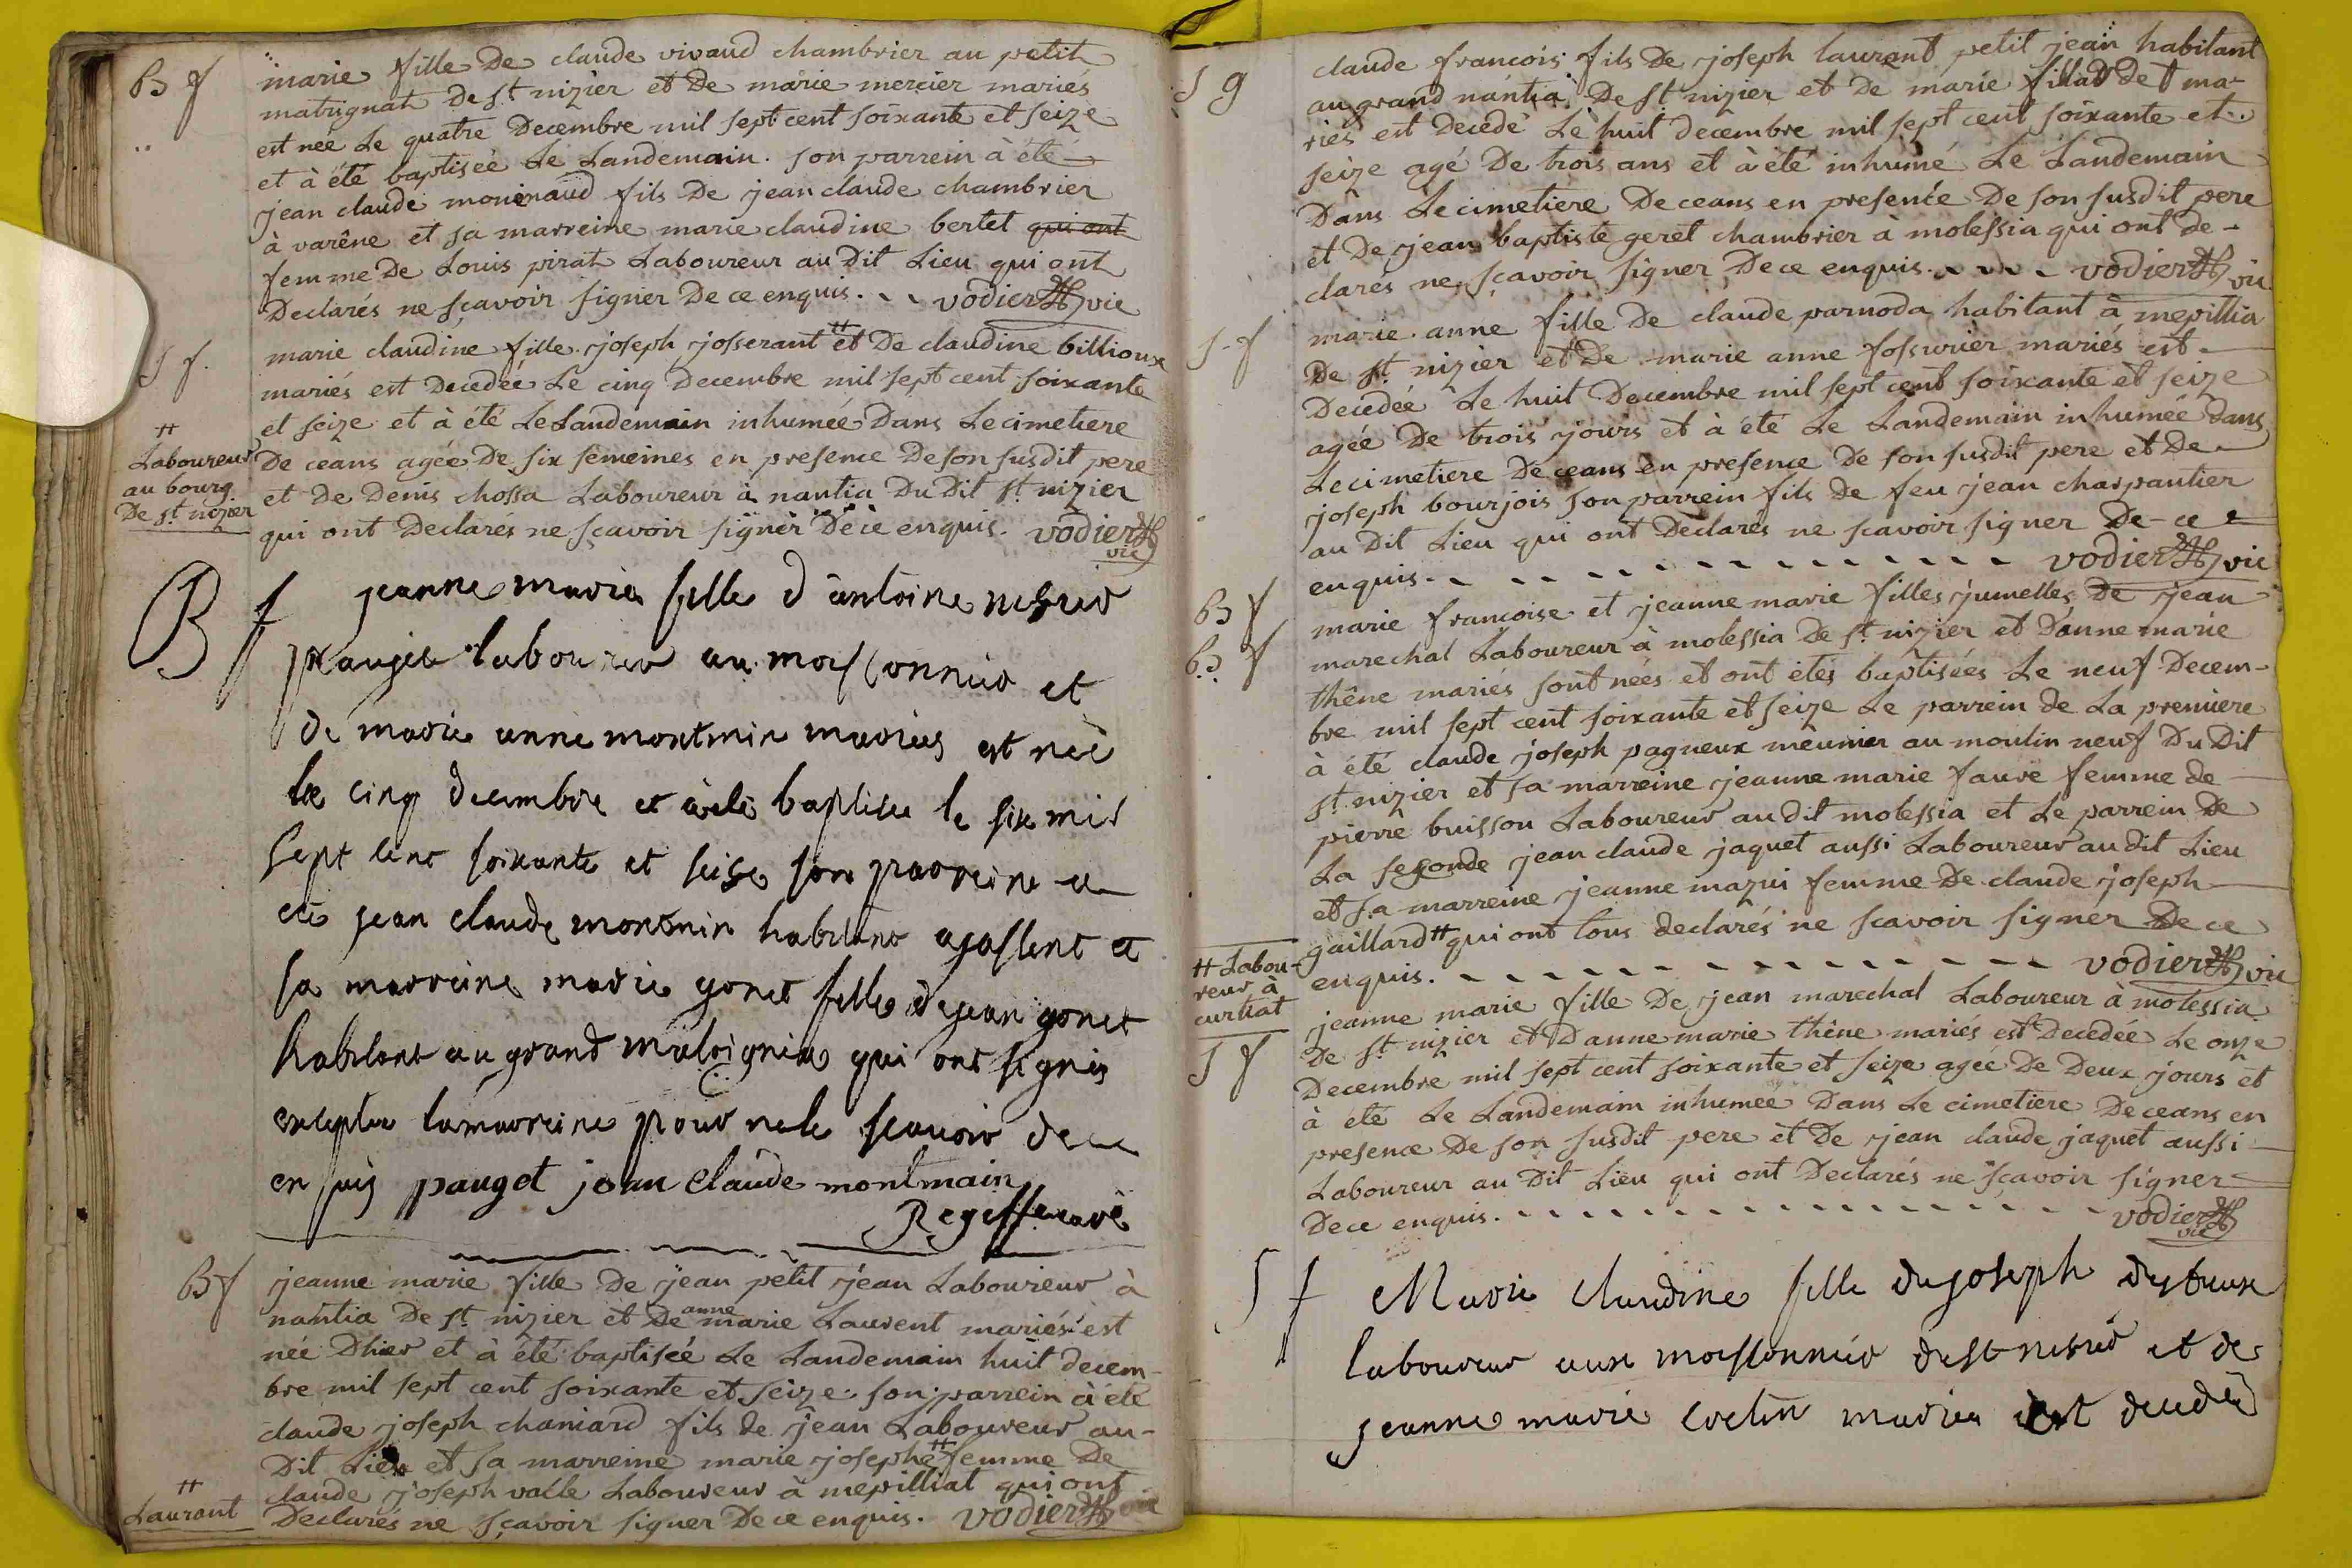 B f
marie fille De claude vivaud chambrier au petit
matrignat de st nizier et De marie mercier mariés
est née Le quatre Decembre mil sept cent soixante et seize
et à été baptisée Le Landemain. son parrein à été
jean claude moninaud fils De jean claude chambrier
à varêne et sa marreine marie claudine bertet qui ont
femme De Louis pirat Laboureur au Dit Lieu qui ont
Declarés ne sçavoir signer De ce enquis. vodier vic
S f.
marie claudine fille joseph josserant # et De claudine billioux
mariés est Decedée Le cinq Decembre mil sept cent soixante
et seize et à été Le Landemain inhumée Dans Le cimetiere
# Laboureur
au bourg
De st nizier
De ceans agée De six semeines en presence De son susdit pere
et de Denis chossa Laboureur à nantia Du Dit st nizier
qui ont Declarés ne sçavoir signer De ce enquis. vodier
vic
B f
jeanne marie fille d antoine
laboureur au moissonnier et
de marie anne montmin mariés est née
le cinq decembre et a été baptisée le six mil
sept cent soixante et seise son parreine a
été jean claude montmin habitant a jassent et
sa marreine marie gonet fille de jean gonet
habitant au grand qui ont signés
excepter la marreine pour ne le scavoir de ce
enquis pauget jean claude montmain
Regeffe curé
B f
jeanne marie fille De jean petit jean Laboureur à
nantia De st nizier et De anne marie Laurent mariés est
née Dhier et à été baptisée Le Landemain huit decem-
bre mil sept cent soixante et seize. son parrein à été
claude joseph chaniard fils de jean Laboureur au-
Dit Lieu et sa marreine marie josephe # femme De
claude joseph valle Laboureur à mepilliat qui ont
# Laurant
Declarés ne sçavoir signer De ce enquis. vodier vic
S g
claude francois fils De joseph laurent petit jean habitant
au grand nantia De st nizier et de marie fillad det ma-
riés est Decedé Le huit decembre mil sept cent soixante et
seize agé De trois ans et à été inhumé Le Landemain
Dans Le cimetiere De ceans en presence De son susdit pere
et De jean baptiste geret chambrier à molessia qui ont de-
clarés ne sçavoir signer De ce enquis. vodier vic
S f
marie anne fille De claude parnoda habitant à mepillia
De st nizier et De marie anne fossurier mariés est
Decedée Le huit Decembre mil sept cent soixante et seize
agée De trois jours et à été Le Landemain inhumée dans
Le cimetiere De ceans en presence De son susdit pere et De
joseph bourjois son parrein fils de feu jean charpantier
au Dit Lieu qui ont Declarés ne scavoir signer De ce
enquis. vodier vic
B f
B f
marie francoise et jeanne marie filles jumelles De jean
marechal Laboureur à molessia De st nizier et Danne marie
thêne mariés sont nées et ont étés baptisées Le neuf Decem-
bre mil sept cent soixante et seize Le parrein de La premiere
à été claude joseph pagneux meunier au moulin neuf Du Dit
st nizier et sa marreine jeanne marie faure femme de
pierre buisson Laboureur au dit molessia et Le parrein De
La segonde jean claude jaquet aussi Laboureur au dit Lieu
et sa marreine jeanne mazui femme De claude joseph
gaillard # qui ont tous declarés ne scavoir signer De ce
# Labou-
reur à
curtiat
enquis. vodier vic
S f
jeanne marie fille De jean marechal Laboureur à molessia
De st nizier et Danne marie thêne mariés est Decedée Le onze
Decembre mil sept cent soixante et seize agée De Deux jours et
à été Le Landemain inhumée Dans Le cimetiere De ceans en
presence De son susdit pere et De jean claude jaquet aussi
Laboureur au Dit Lieu qui ont Declarés ne sçavoir signer
De ce enquis. vodier
vic
S f
Marie claudine fille de joseph
laboureur aux moissonnier de st et de
jeanne marie mariés est decedée